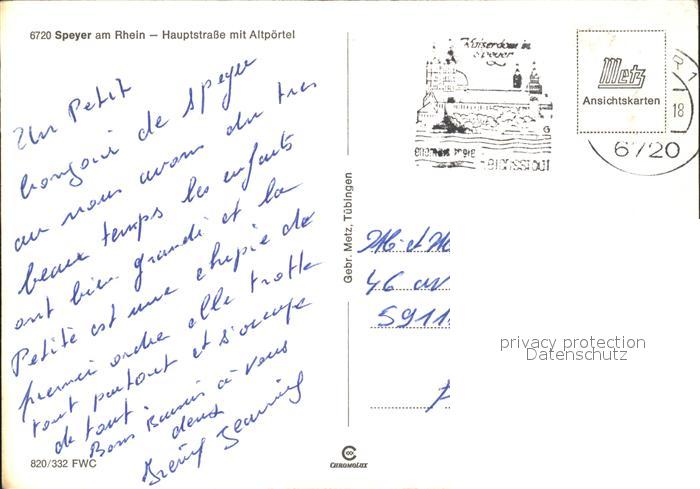 6720 Speyer am Rhein — Hauptstraße mit Altpörtel
Un Petit
bonjour de Speyer
au nous avons du tres
beau temps les enfants
ont bien grandi et la
Petite est une chipie de
premier ordre elle trotte
tout partout et s'occupe
de tout
Bons Baisers à vous
deux
820/332 FWC
Gebr. Metz, Tübingen
CHROMOLUX
Kaiserdom in
Speyer
Metz
Ansichtskarten
18
6720
M. et M
46 av
5911
privacy protection
Datenschutz